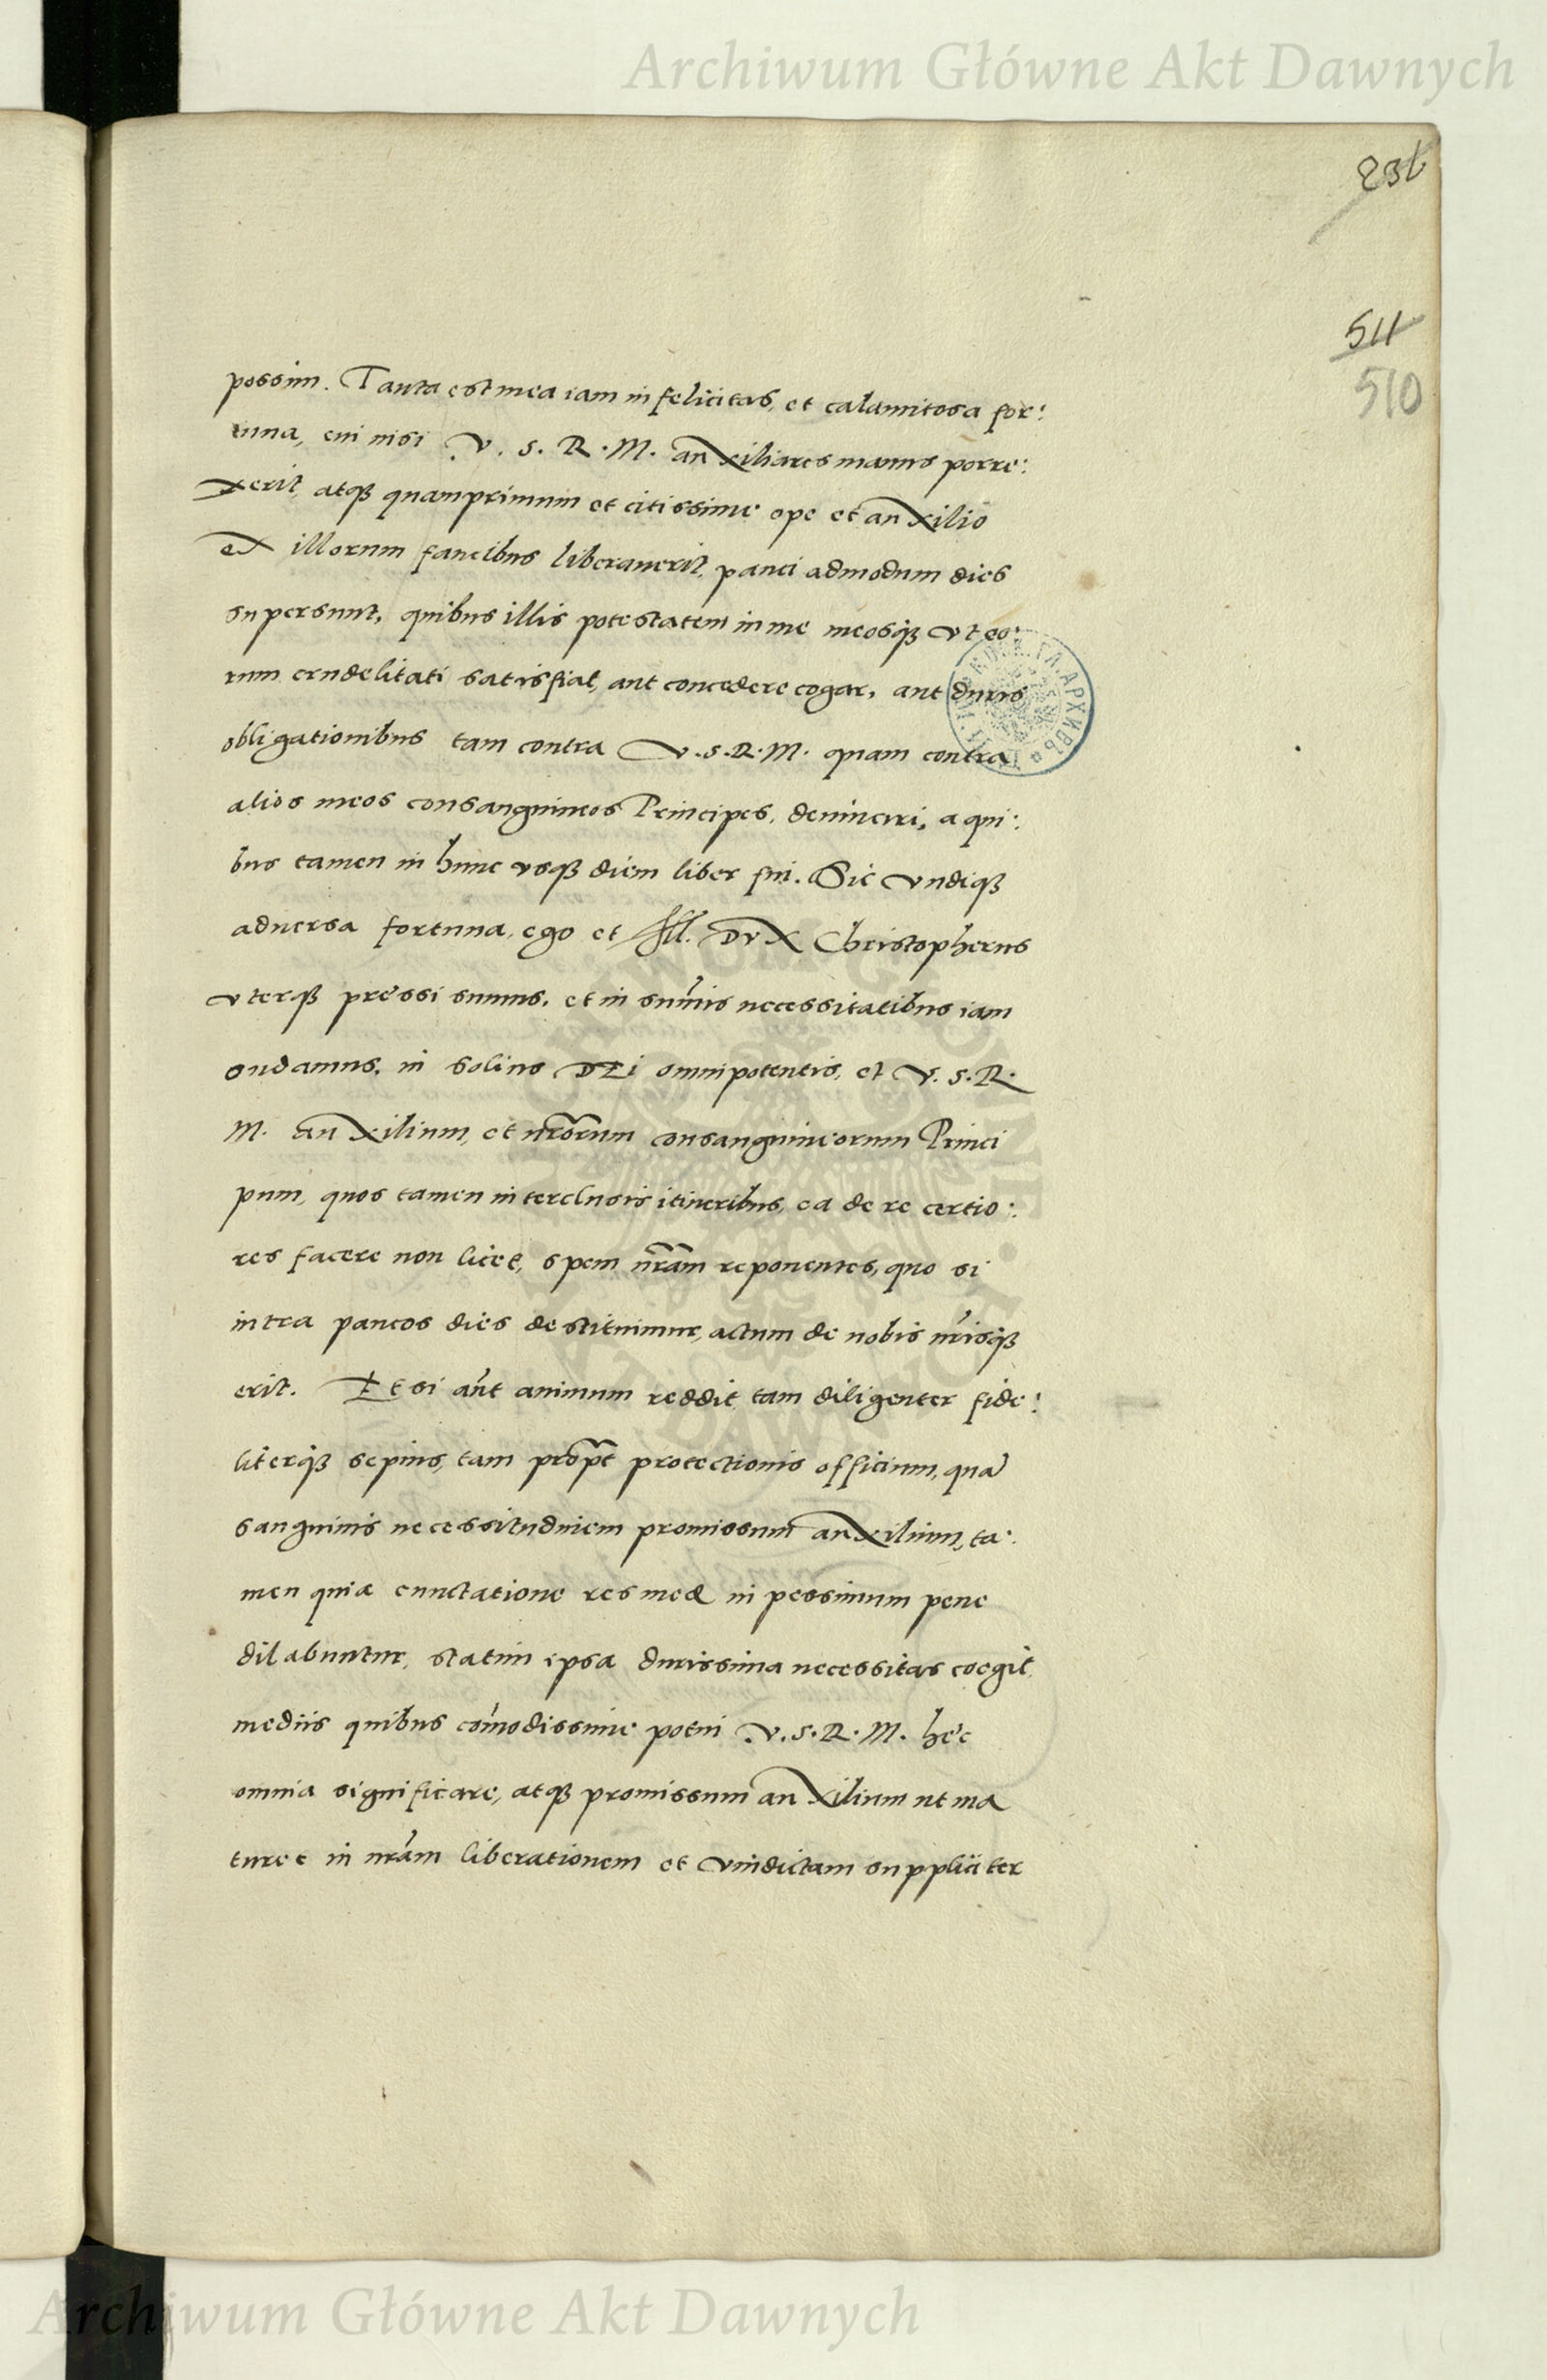 Archiwum Główne Akt Dawnych
231
511
510
possim. Tanta est mea iam infelicitas, et calamitosa for:
tuna, cui nisi V. S. R. M. auxiliares manus porre:
xerit, atqȝ quamprimum et citissime ope et auxilio
ex illorum faucibus liberauerit, pauci admodum dies
supersunt, quibus illis potestatem in me meosqȝ vt eo:
rum crudelitati satisfiat, aut concedere cogar, aut duris
obligationibus tam contra V. S. R. M. quam contra
alios meos consanguineos Principes, deuinciri, a qui:
bus tamen in hunc vsqȝ diem liber fui. Sic vndiqȝ
aduersa fortuna, ego et Ill. Dux Christopherus
vterqȝ pressi sumus, et in sum̃is necessitatibus iam
sudamus, in solius DEi omnipotentis, et V. S. R.
M. auxilium, et nr̃orum consanguineorum Princi
pum, quos tamen interclusis itineribus, ea de re certio:
res facere non licet, spem nr̃am reponentes, quo si
intra paucos dies destituimur, actum de nobis nr̃isqȝ
erit. Etsi aũt animum reddit tam diligenter fide:
literqȝ sepius, tam prop̃t protectionis officium, quã
sanguinis necessitudinem promissum auxilium, ta:
men quia cunctatione res meæ in pessimum pene
dilabuntur, statim ipsa durissima necessitas coegit
mediis quibus com̃odissime potui V. S. R. M. hęc
omnia significare, atqȝ promissum auxilium ut ma
turet in nr̃am liberationem et vindictam suppliciter
Archiwum Główne Akt Dawnych